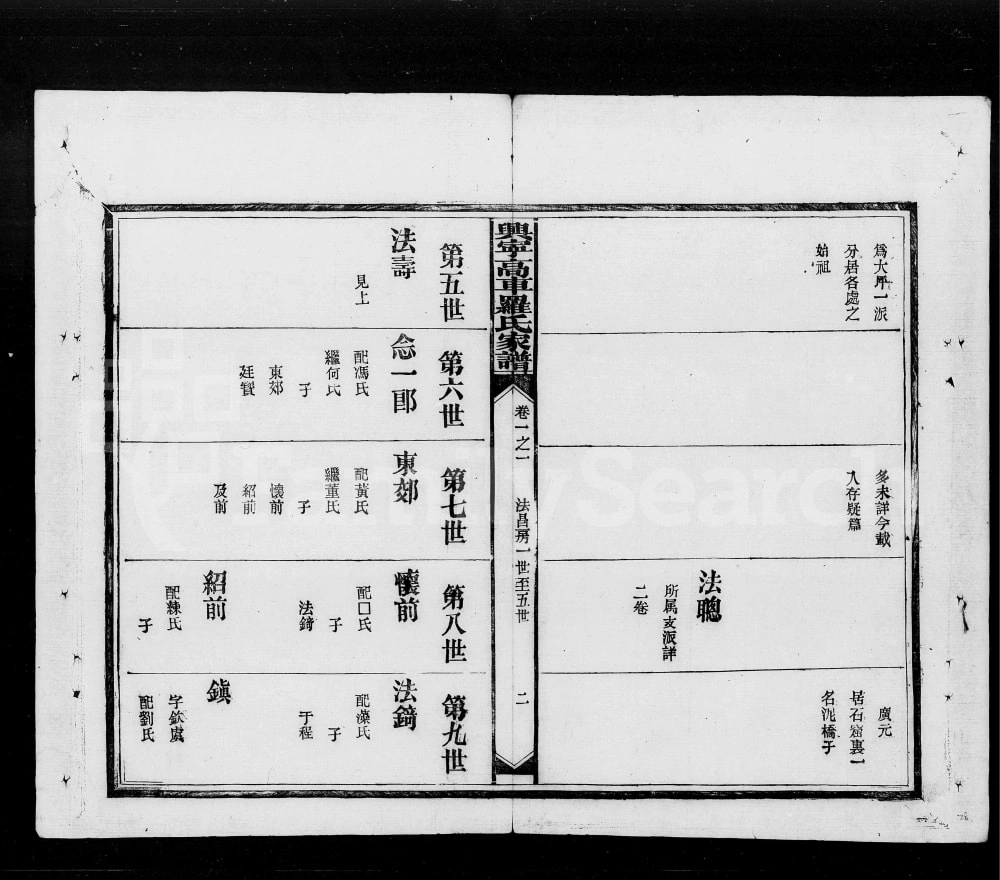 爲大坪一派
分居各處之
始祖
多未詳今載
入存疑篇
法聰
所属支派詳
二卷
廣元
居石窟裏一
名泥橋子
興寧高車羅氏家譜
卷一之一
法昌房一世至五世
二
第五世
法壽
見上
第六世
念一郎
配馮氏
繼何氏
子
東郊
廷賢
第七世
東郊
配黃氏
繼董氏
子
懷前
紹前
及前
第八世
懷前
配口氏
子
法錡
紹前
配練氏
子
第九世
法錡
配藻氏
子
于程
鎮
字欽虞
配劉氏
FamilySearch